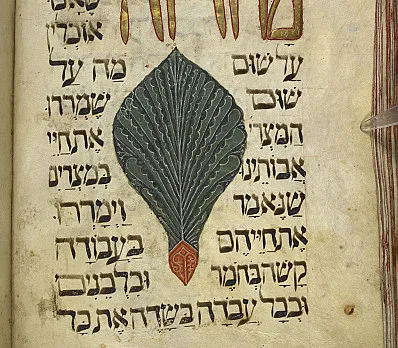 שֶׁאָנוּ
אוֹכְלִין
עַל שׁוּם מַה עַל
שׁוּם שֶׁמֵּרְרוּ
הַמִּצְרִי אֶת חַיֵּי
אֲבוֹתֵינוּ בְּמִצְרַיִם
שֶׁנֶּאֱמַר וַיְמָרְרוּ
אֶת חַיֵּיהֶם בַּעֲבוֹדָה
קָשָׁה בְּחֹמֶר וּבִלְבֵנִים
וּבְכָל עֲבֹדָה בַּשָּׂדֶה אֶת כָּל